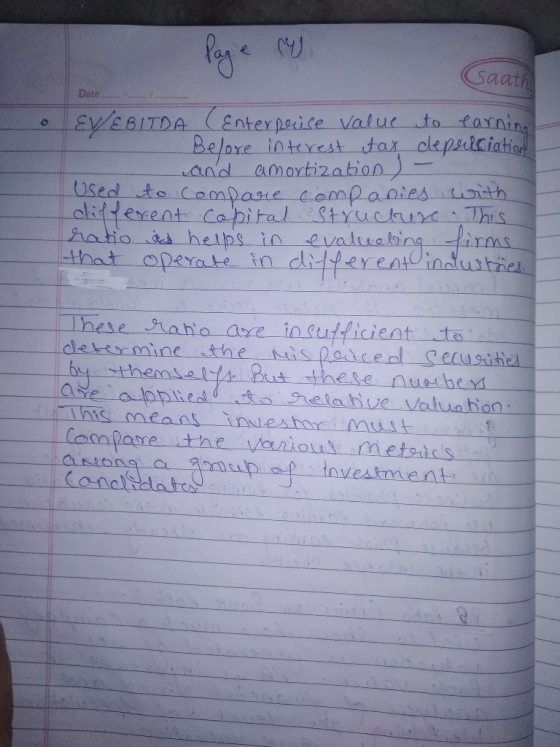 Page (4)
Saath
Date ___/___/___
EV/EBITDA (Enterprise value to earning
Before interest tax depriciation
and amortization) -
Used to compare companies with
different capital structure. This
ratio helps in evaluating firms
that operate in different industries.
These ratio are insufficient to
determine the mispriced securities
by themselfs. But these numbers
are applied to relative valuation.
This means investor must
compare the various metrics
among a group of investment
candidates